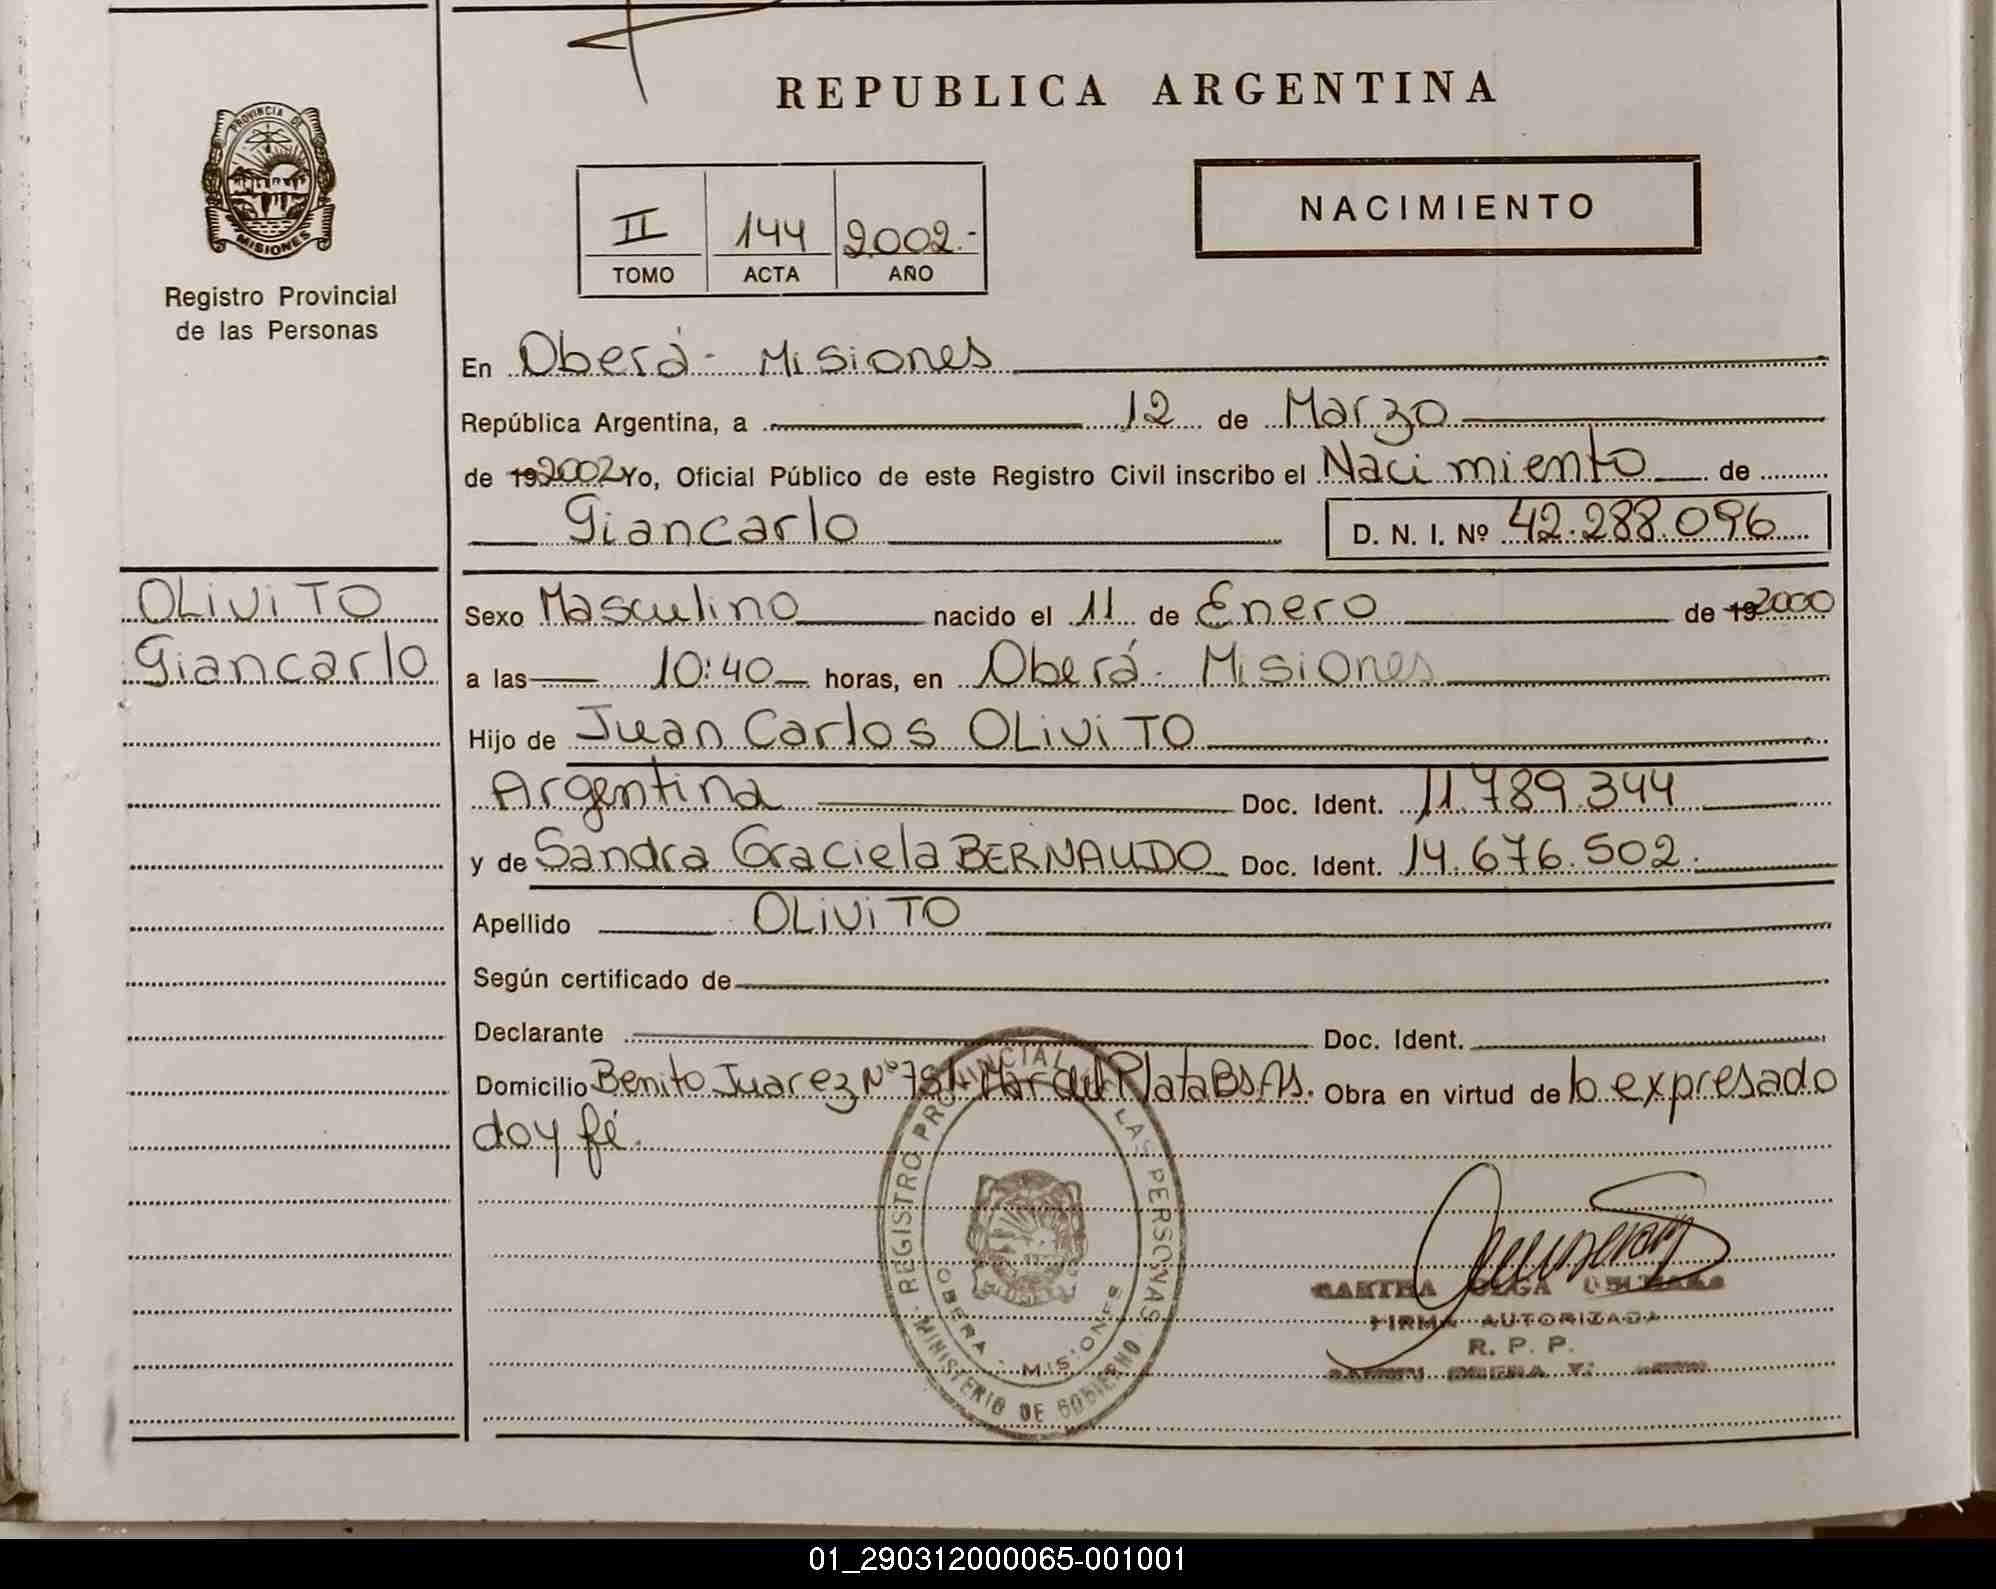 REPUBLICA ARGENTINA
PROVINCIA DE
MISIONES
Registro Provincial
de las Personas
II 144 2002.-
TOMO ACTA AÑO
NACIMIENTO
En Oberá - Misiones
República Argentina, a 12 de Marzo
de 19 2002 Yo, Oficial Público de este Registro Civil inscribo el Nacimiento de
Giancarlo D. N. I. Nº 42.288.096
OLiViTO
Giancarlo
Sexo Masculino nacido el 11 de Enero de 19 2000
a las 10:40 horas, en Oberá - Misiones
Hijo de Juan Carlos OLiViTO
Argentina Doc. Ident. 11.789.344
y de Sandra Graciela BERNAUDO Doc. Ident. 14.676.502.
Apellido OLiViTO
Según certificado de
Declarante Doc. Ident.
Domicilio Benito Juarez Nº Mar del Plata Bs As. Obra en virtud de lo expresado
doy fé.
REGISTRO PROVINCIAL LAS PERSONAS
OBERA - MISIONES
MINISTERIO DE GOBIERNO
OLGA
FIRMA AUTORIZADA
R. P. P.
01_290312000065-001001